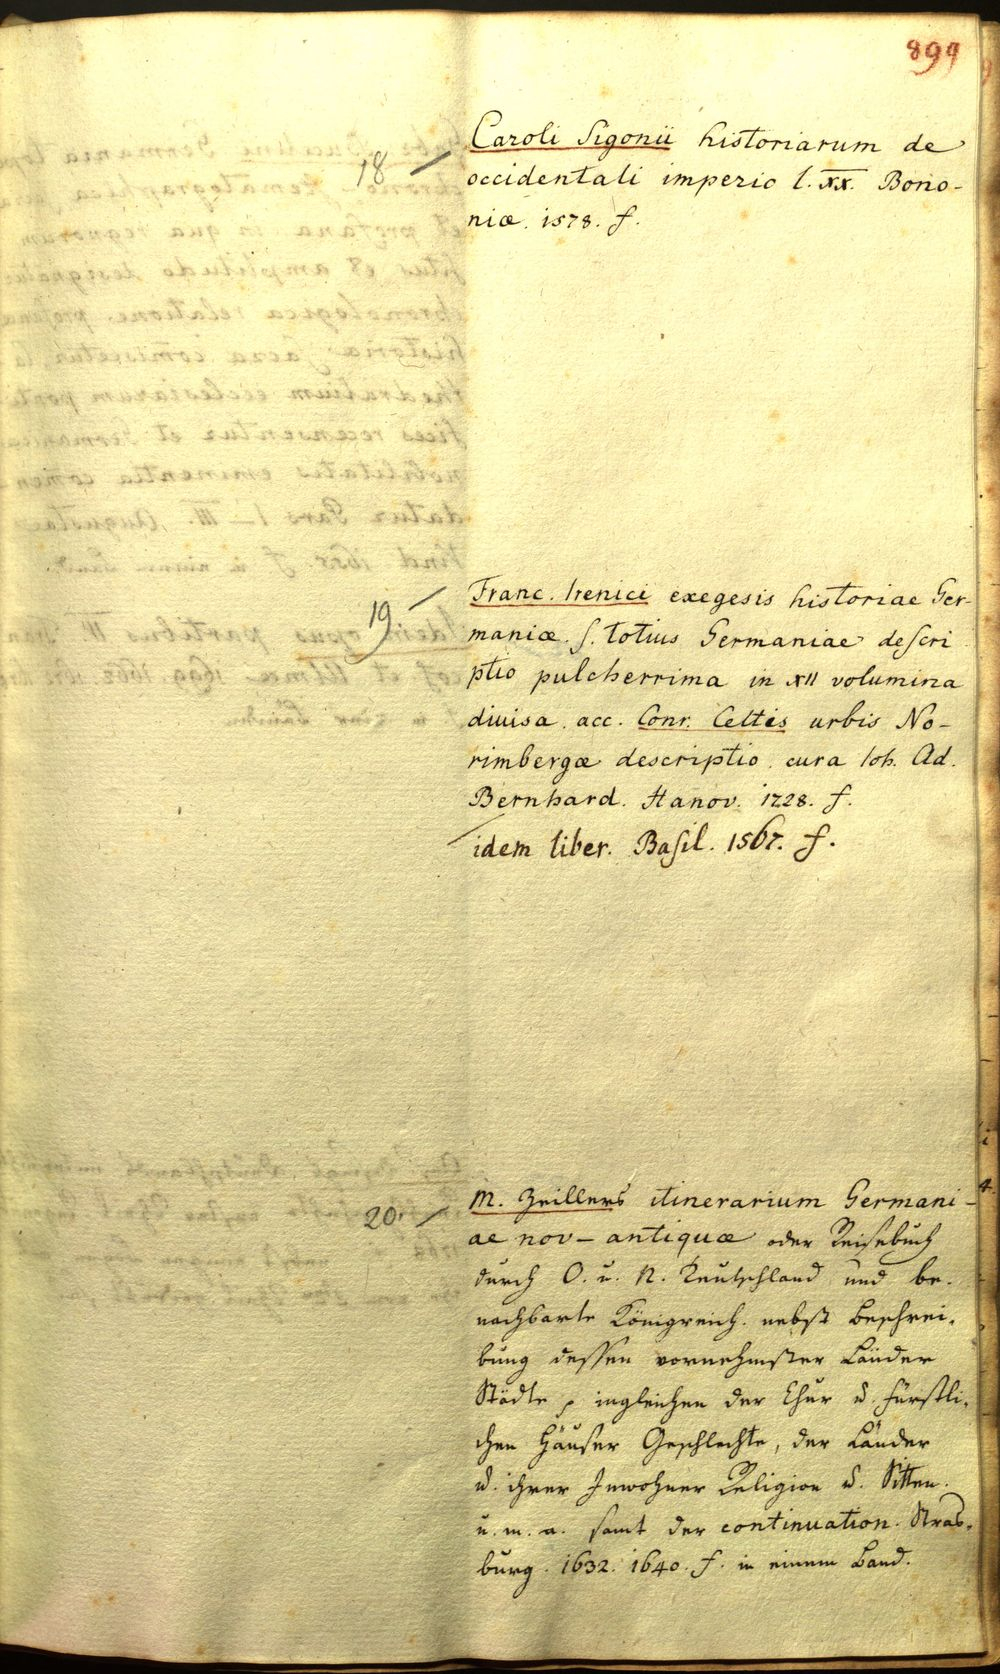 899
18 Caroli Sigonii historiarum de
occidentali imperio l. XX. Bono-
niæ. 1578. f.
19 Franc. Irenici exegesis historiae Ger-
maniæ. s. totius Germaniae descri
ptio pulcherrima in XII volumina
divisa. acc. Conr. Celtis urbis No-
rimbergæ descriptio. cura Ioh. Ad.
Bernhard. Hanov. 1728. f.
idem liber. Basil. 1567. f.
20. M. Zeillers itinerarium Germani-
ae nov-antiquæ oder Reisebuch
durch O. u. N. Teutschland und be-
nachbarte Königreich. nebst beschrei-
bung dessen vornehmster Länder
Städte p ingleichen der Chur u. fürstli-
chen Häuser Geschlechte, der Länder
u. ihrer Inwohner Religion u. Sitten.
u. m. a. samt der continuation. Stras-
burg. 1632. 1640. f. in einem Band.